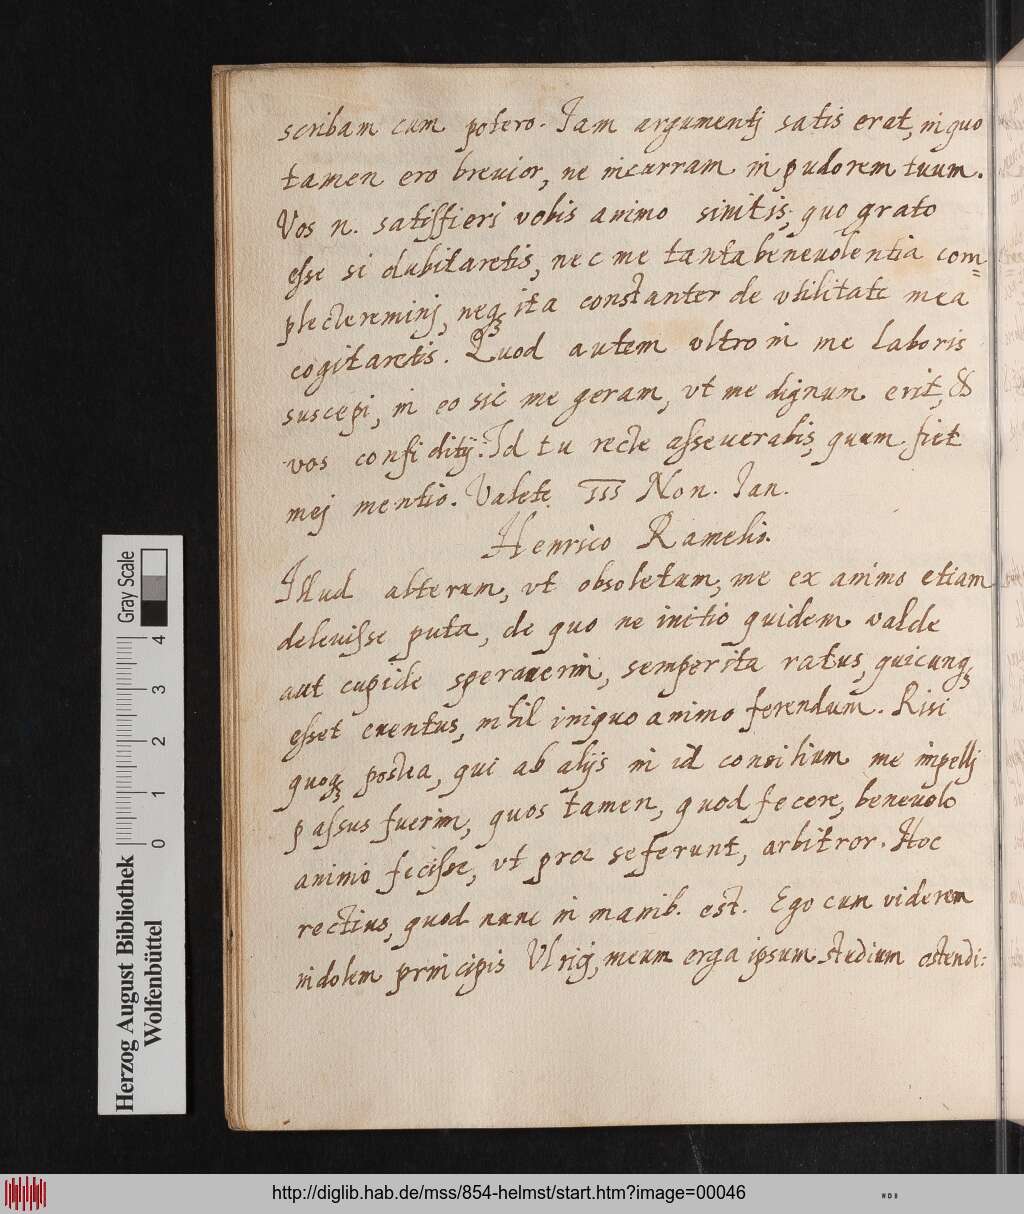 scribam cum potero. Iam argumentj satis erat, in quo
tamen ero breuior, ne incurram in pudorem tuum.
Vos n. satisfieri vobis animo sinitis, quo grato
esse si dubitaretis, nec me tanta beneuolentia com=
plectereminj, neq₃ ita constanter de vtilitate mea
cogitaretis. Quod autem vltro in me laboris
suscepi, in eo sic me geram, vt me dignum erit, &
vos confiditis. Id tu recte asseuerabis, quum fiet
mej mentio. Valete. Non. Ian.
Henrico Ramelio.
Illud alterum, vt obsoletum, me ex animo etiam
deleuisse puta, de quo ne initio quidem valde
aut cupide sperauerim, semper ita ratus, quicunq₃
esset euentus, nihil iniquo animo ferendum. Risi
quoq₃ postea, qui ab alijs in id consilium me impellj
passus fuerim, quos tamen, quod fecere, beneuolo
animo fecisse, vt prae se ferunt, arbitror. Hoc
rectius, quod nunc in manib. est. Ego cum viderem
indolem principis Vlricj, meum erga ipsum studium ostendi:
Herzog August Bibliothek
Wolfenbüttel
Gray Scale
0 1 2 3 4
http://diglib.hab.de/mss/854-helmst/start.htm?image=00046